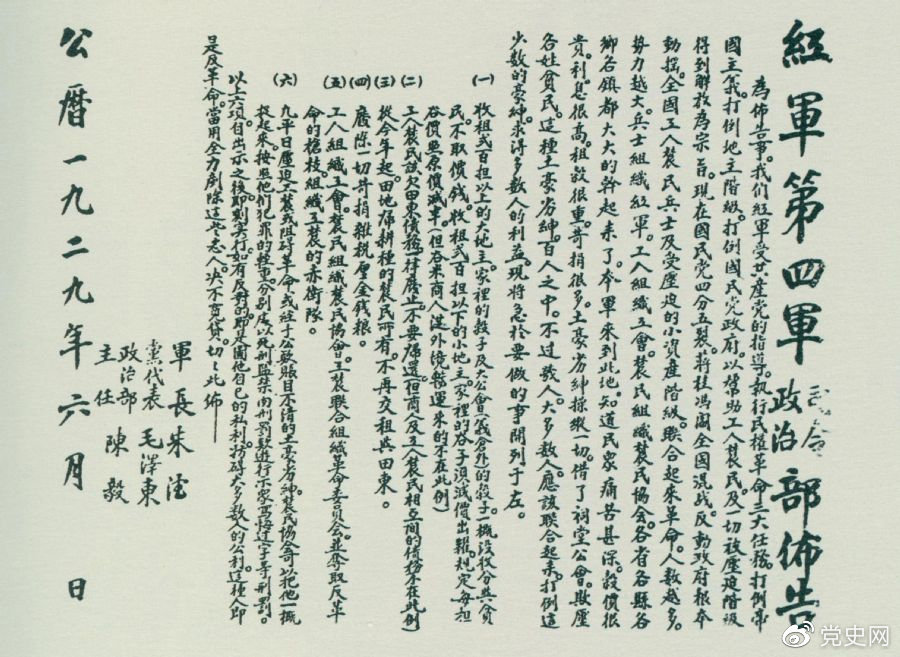 紅軍第四軍司令部政治部佈告
為佈告事。我們紅軍受共產党的指導。執行民權革命三大任務。打倒帝
國主義。打倒地主階級。打倒國民党政府。以幫助工人農民及一切被壓迫階級
得到解放為宗旨。現在國民党四分五裂。蔣桂馮閻全國混战。反動政府根本
動搖。全國工人農民兵士及受壓迫的小資產階級。聯合起來革命。人数越多。
勢力越大。兵士組織紅軍。工人組織工會。農民組織農民協会。各省各縣各
鄉各鎮都大大的幹起來了。本軍來到此地。知道民眾痛苦甚深。穀價很
貴。利息很高。租穀很重。苛捐很多。土豪劣紳操縱一切。借了祠堂公會。欺壓
各姓貧民。這種土豪劣紳。百人之中。不过数人。大多数人應該联合起來。打倒這
少数的豪紳。求得多数人的利益。現將急於要做的事開列于左。
(一) 收租弍百担以上的大地主。家裡的穀子及大公會(義倉外)的穀子一概没收分與貧
民。不取價钱。收租弍百担以下的小地主。家裡的谷子須減價出糶。規定每担
谷價照原價減半。(但谷米商人從外境輸運來的不在此例)
(二) 工人農民該欠田東債務一律廢止。不要歸還。(但商人及工人農民相互間的債務不在此例)
(三) 從今年起。田地归耕種的農民所有。不再交租與田東。
(四) 廢除一切苛捐雜税厘金錢粮。
(五) 工人組織工會。農民組織農民協會。工農聯合組織革命委員会。並奪取反革
命的槍枝組織工農的赤衛隊。
(六) 凡平日壓迫工農或阻碍革命。或經手公款賬目不清的土豪劣紳。農民協会可以把他一概
捉起來。按照他们犯罪的輕重。分别處以死刑監禁肉刑罰款遊行示家写悔过字等刑罰。
以上六項自出示之後。即刻实行。如有反對的。即是圖他自己的私利。妨碍大多数人的公利。這種人即
是反革命。當用全力剷除這些惡人。决不寬貸。切切此佈
軍長 朱德
黨代表 毛澤東
政治部主任 陳毅
公曆一九二九年六月 日
党史网